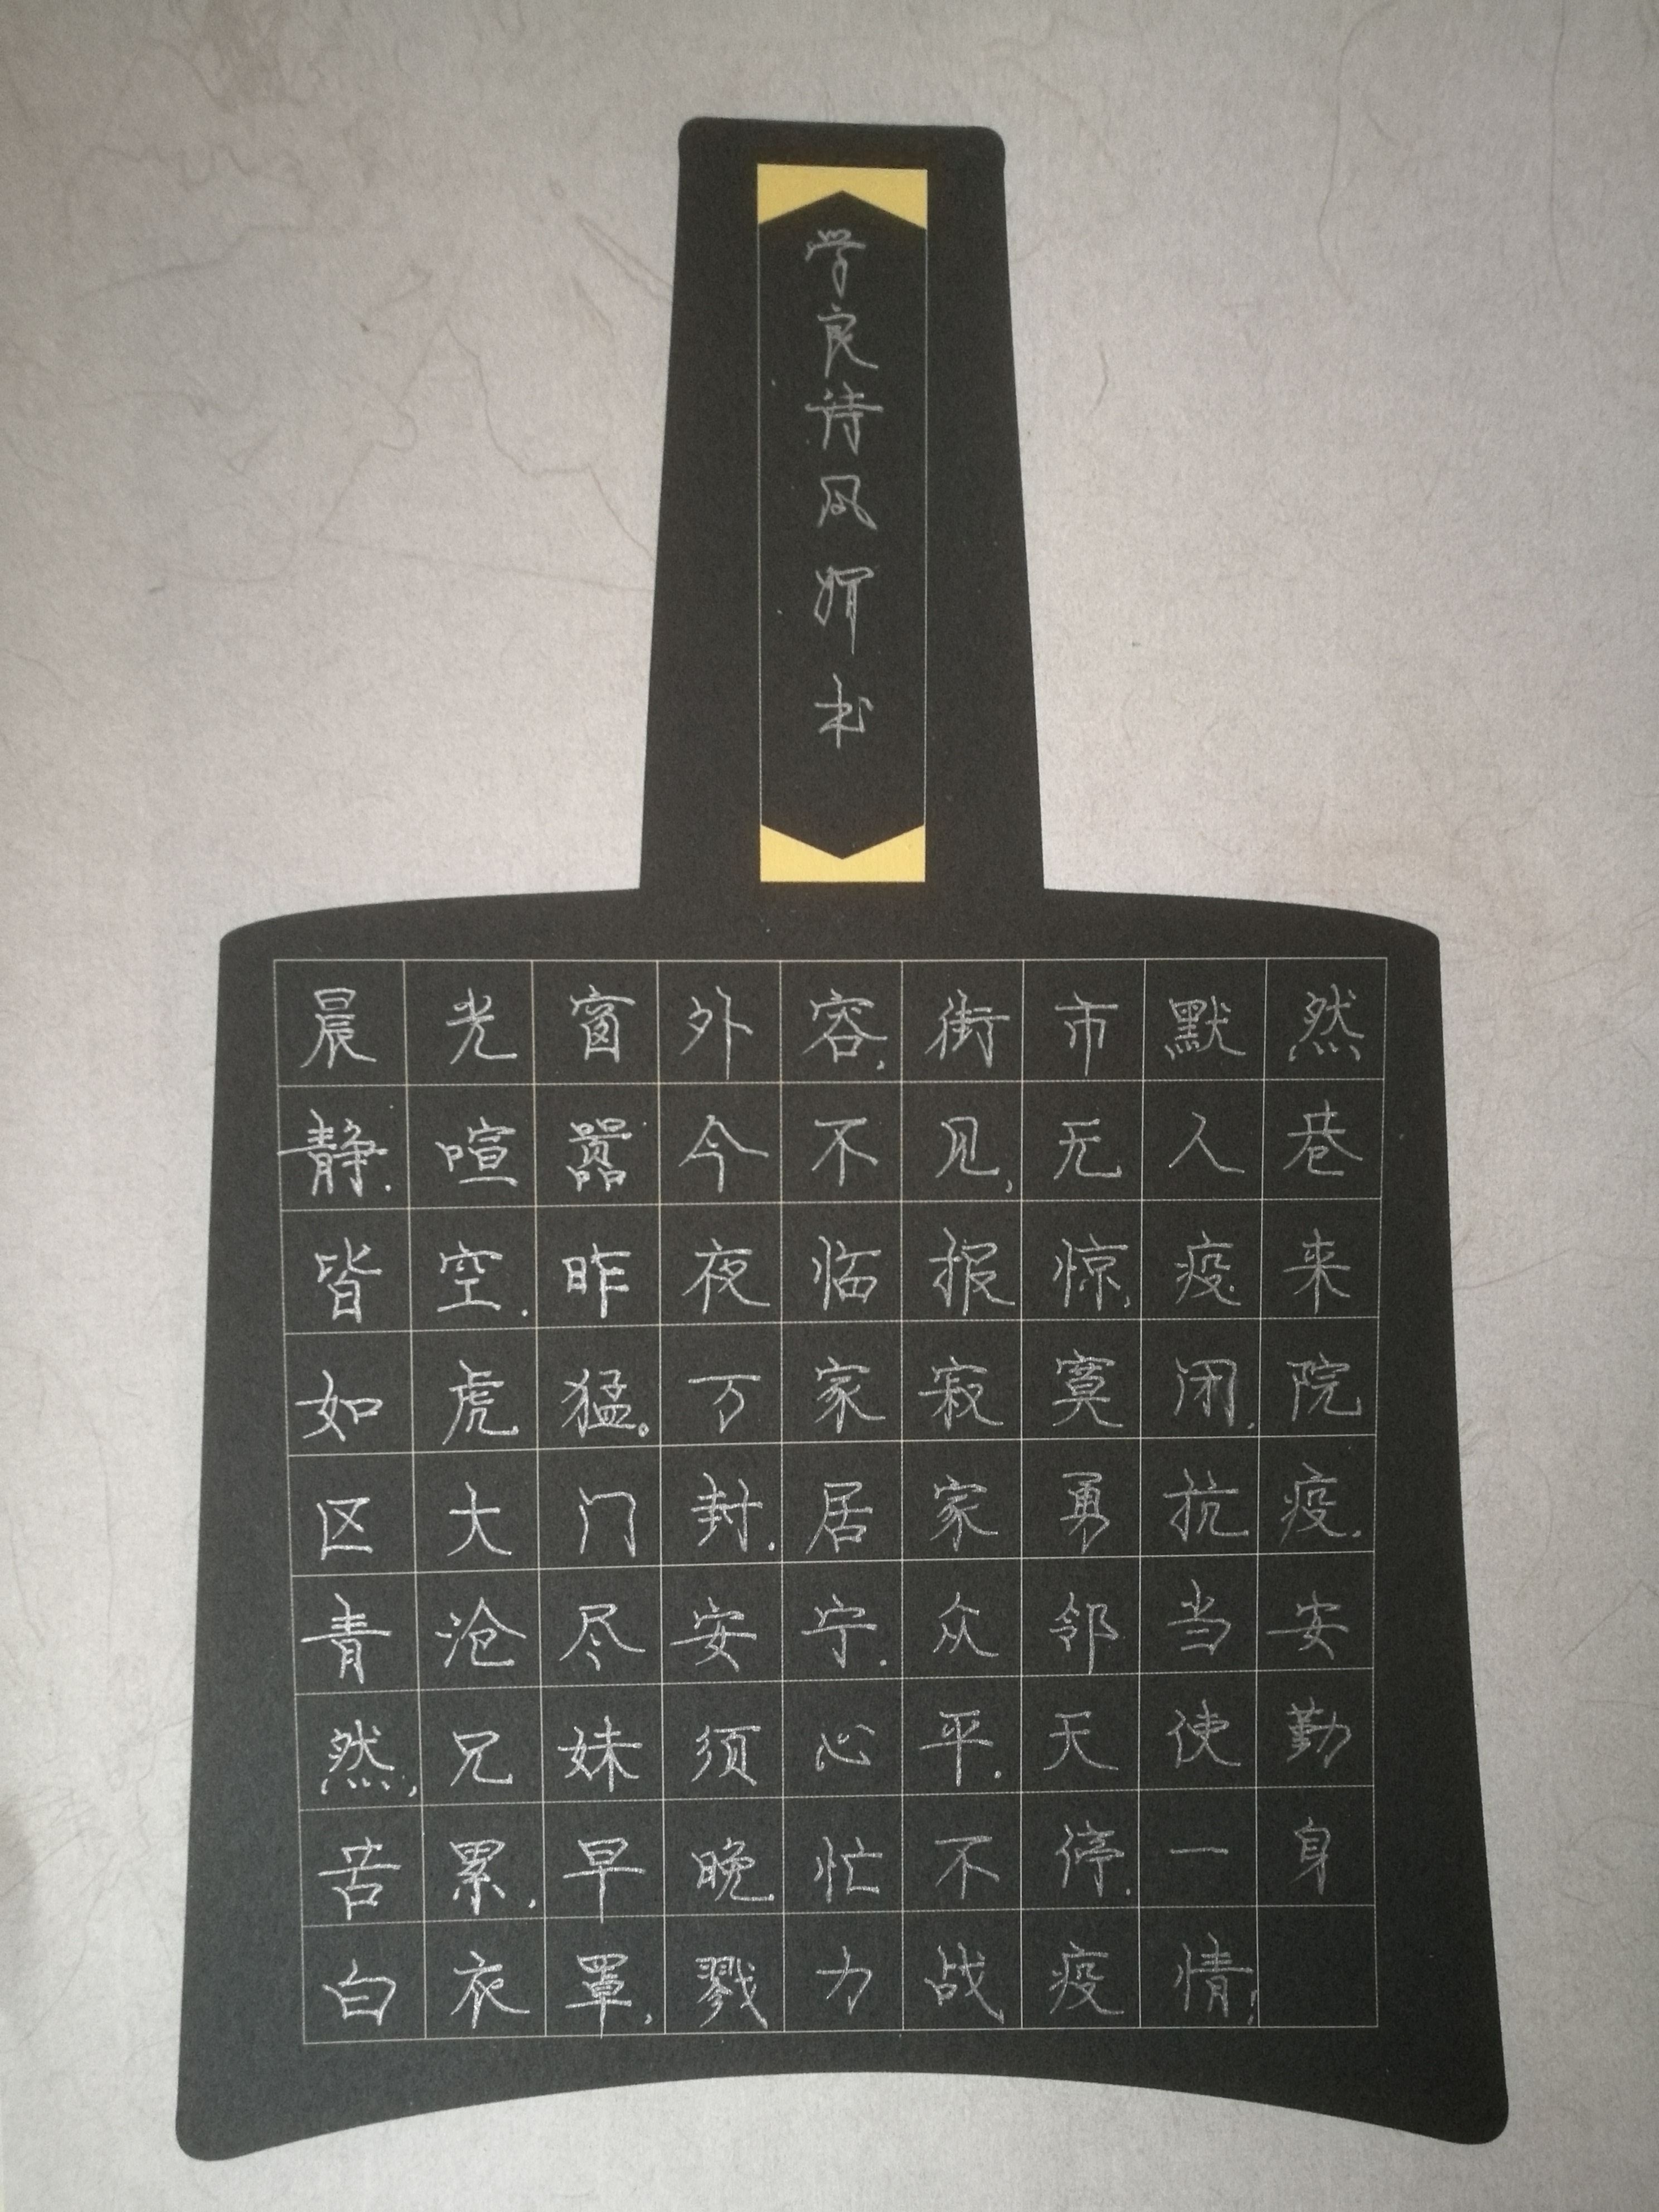 学良诗风书
晨光窗外容,街市默然
静.喧嚣今不见,无人巷
皆空.昨夜临报惊,疫来
如虎猛。万家寂寞闭,院
区大门封.居家勇抗疫.
青沧尽安宁.众邻当安
然,兄妹须心平.天使勤
苦累.早晚忙不停.一身
白衣罩,戮力战疫情!